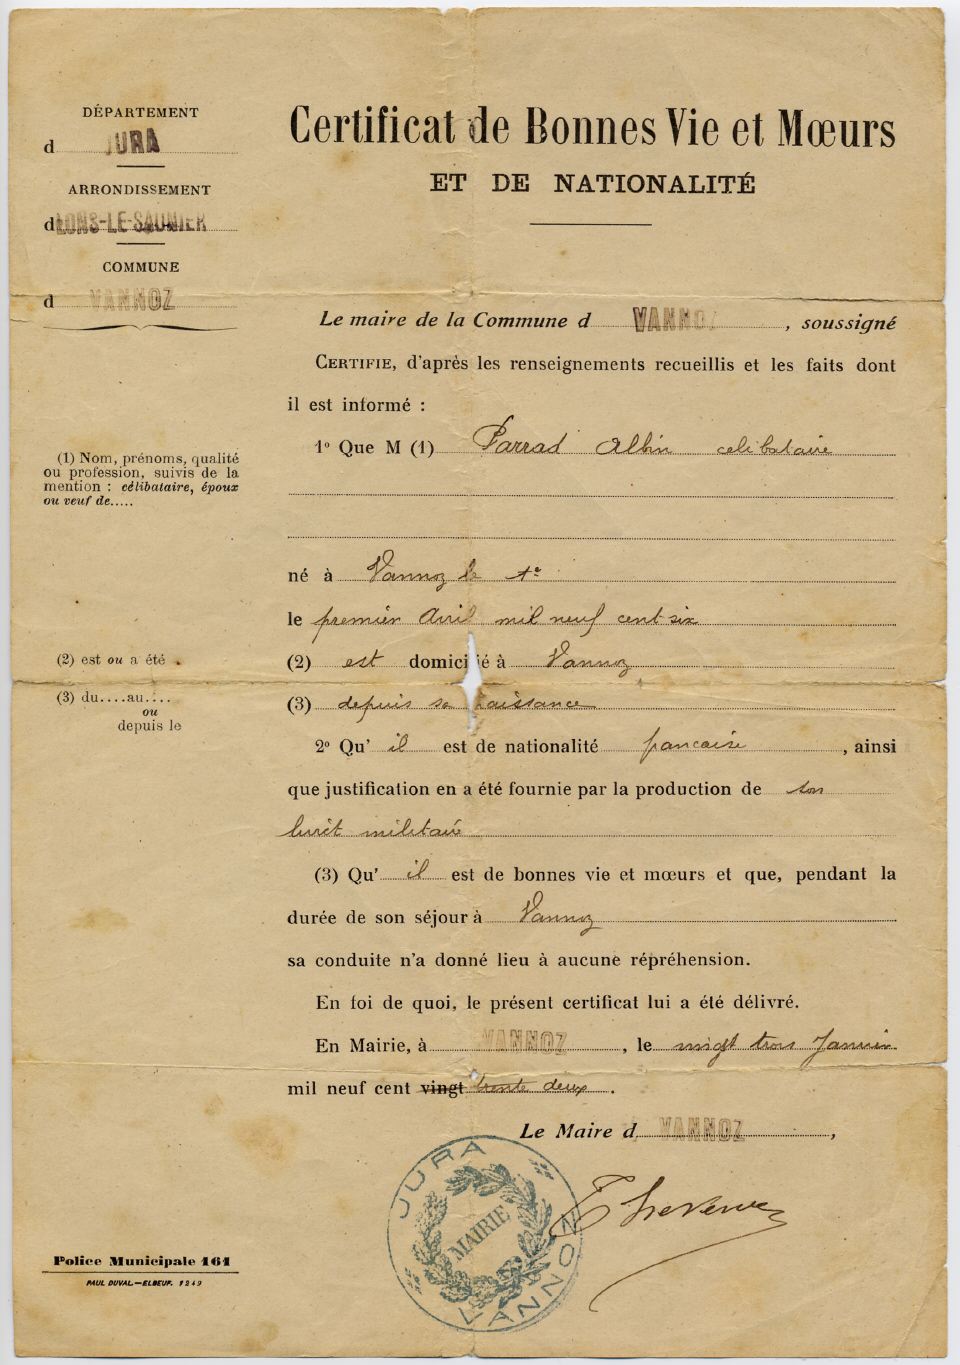 DÉPARTEMENT
d JURA
ARRONDISSEMENT
d LONS-LE-SAUNIER
COMMUNE
d VANNOZ
Certificat de Bonnes Vie et Mœurs
ET DE NATIONALITÉ
Le maire de la Commune d VANNOZ, soussigné
CERTIFIE, d'après les renseignements recueillis et les faits dont
il est informé :
1º Que M (1) Parrad Albin celibataire
(1) Nom, prénoms, qualité
ou profession, suivis de la
mention : célibataire, époux
ou veuf de.....
né à Vannoz le 1er
le premier Avril mil neuf cent six
(2) est ou a été
(2) est domicilié à Vannoz
(3) du....au....
ou
depuis le
(3) depuis sa naissance
2º Qu' il est de nationalité francaise, ainsi
que justification en a été fournie par la production de son
livret militaire
(3) Qu' il est de bonnes vie et mœurs et que, pendant la
durée de son séjour à Vannoz
sa conduite n'a donné lieu à aucune répréhension.
En foi de quoi, le présent certificat lui a été délivré.
En Mairie, à VANNOZ, le vingt trois Janvier
mil neuf cent vingt trente deux.
Le Maire d VANNOZ,
JURA
MAIRIE
VANNOZ
Police Municipale 161
PAUL DUVAL.—ELBEUF. 1249